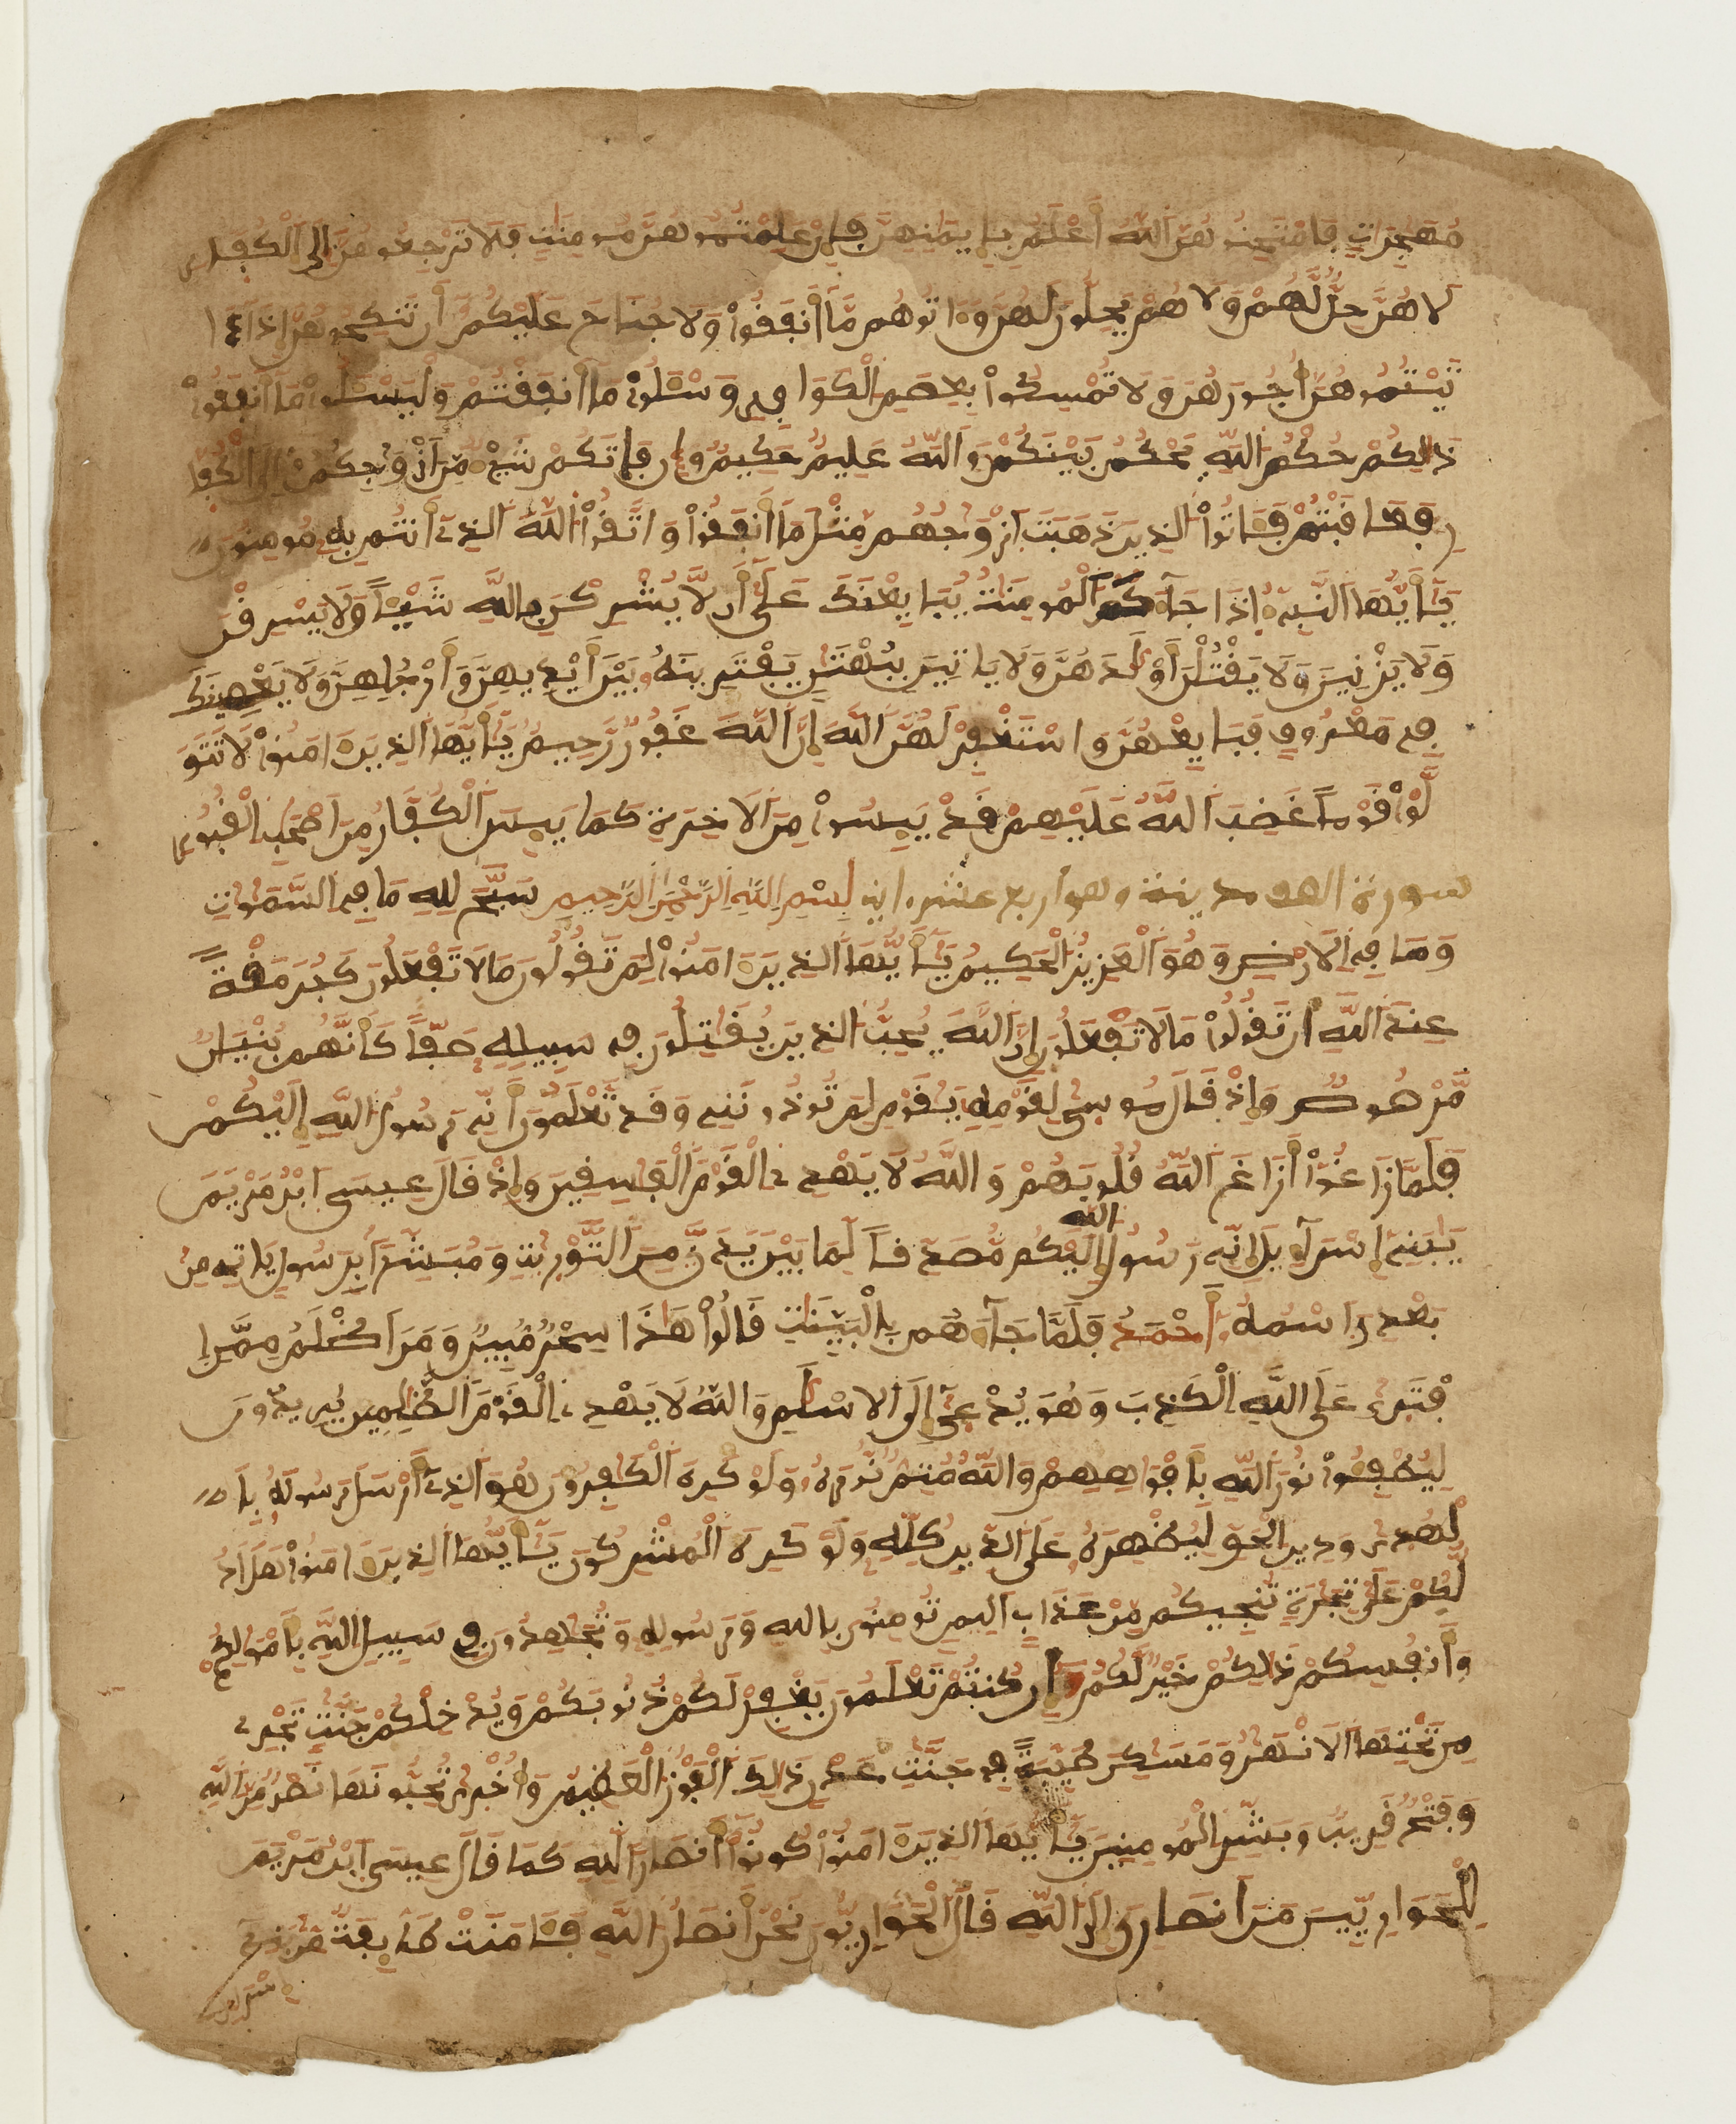 مُهَٰجِرَٰتٖ فَامْتَحِنُوهُنَّ اَللَّهُ أَعْلَمُ بِإِيمَٰنِهِنَّ فَإِنْ عَلِمْتُمُوهُنَّ مُومِنَٰتٖ فَلَا تَرْجِعُوهُنَّ إِلَى اَلْكُفّ۪ارِ
لَا هُنَّ حِلٌّ لَّهُمْ وَلَا هُمْ يَحِلُّونَ لَهُنَّ وَءَاتُوهُم مَّا أَنفَقُواْ وَلَا جُنَاحَ عَلَيْكُمُ أَن تَنكِحُوهُنَّ إِذَا ءَا
تَيْتُمُوهُنَّ أُجُورَهُنَّ وَلَا تُمْسِكُواْ بِعِصَمِ اِلْكَوَافِرِ وَسْـَٔلُواْ مَا أَنفَقْتُمْ وَلْيَسْـَٔلُواْ مَا أَنفَقُواْ
ذَٰلِكُمْ حُكْمُ اُللَّهِ يَحْكُمُ بَيْنَكُمْ وَاَللَّهُ عَلِيمٌ حَكِيمٌ وَإِن فَاتَكُمْ شَيْءٌ مِّنَ أَزْوَٰجِكُمُ إِلَى اَلْكُفّا
رِ فَعَاقَبْتُمْ فَـَٔاتُواْ اُلذِينَ ذَهَبَتَ اَزْوَٰجُهُم مِّثْلَ مَا أَنفَقُواْ وَاتَّقُواْ اُللَّهَ اَلذِي أَنتُم بِهِ مُومِنُونَ
يَٰأَيُّهَا اَلنَّبِيءُ إِذَا جَآءَكَ اَلْمُومِنَٰتُ يُبَايِعْنَكَ عَلَىٰ أَن لَّا يُشْرِكْنَ بِاللَّهِ شَيْـٔاً وَلَا يَسْرِقْنَ
وَلَا يَزْنِينَ وَلَا يَقْتُلْنَ أَوْلَٰدَهُنَّ وَلَا يَاتِينَ بِبُهْتَٰنٖ يَفْتَرِينَهُ بَيْنَ أَيْدِيهِنَّ وَأَرْجُلِهِنَّ وَلَا يَعْصِينَكَ
فِي مَعْرُوفٖ فَبَايِعْهُنَّ وَاسْتَغْفِرْ لَهُنَّ اَللَّهَ إِنَّ اَللَّهَ غَفُورٌ رَّحِيمٌ يَٰأَيُّهَا اَلذِينَ ءَامَنُواْ لَا تَتَوَ
لَّوْاْ قَوْماً غَضِبَ اَللَّهُ عَلَيْهِمْ قَدْ يَيِسُواْ مِنَ اَلَاخِرَةِ كَمَا يَيِسَ اَلْكُفَّارُ مِنَ اَصْحَٰبِ اِلْقُبُورِ
سورة الصف مدينة وهو اربع عشره اية بِسْمِ اِللَّهِ اِلرَّحْمَٰنِ اِلرَّحِيمِ سَبَّحَ لِلهِ مَا فِي اِلسَّمَٰوَٰتِ
وَمَا فِي اِلَارْضِ وَهُوَ اَلْعَزِيزُ اُلْحَكِيمُ يَٰأَيُّهَا اَلذِينَ ءَامَنُواْ لِمَ تَقُولُونَ مَا لَا تَفْعَلُونَ كَبُرَ مَقْتاً
عِندَ اَللَّهِ أَن تَقُولُواْ مَا لَا تَفْعَلُونَ إِنَّ اَللَّهَ يُحِبُّ اُلذِينَ يُقَٰتِلُونَ فِي سَبِيلِهِ صَفّاً كَأَنَّهُم بُنْيَٰنٌ
مَّرْصُوصٌ وَإِذْ قَالَ مُوسَىٰ لِقَوْمِهِ يَٰقَوْمِ لِمَ تُوذُونَنِي وَقَد تَّعْلَمُونَ أَنِّي رَسُولُ اُللَّهِ إِلَيْكُمْ
فَلَمَّا زَاغُواْ أَزَاغَ اَللَّهُ قُلُوبَهُمْ وَاللَّهُ لَا يَهْدِي اِلْقَوْمَ اَلْفَٰسِقِينَ وَإِذْ قَالَ عِيسَى اَبْنُ مَرْيَمَ
يَٰبَنِي إِسْرَآءِيلَ إِنِّي رَسُولُ اُللَّهِ إِلَيْكُم مُّصَدِّقاً لِّمَا بَيْنَ يَدَيَّ مِنَ اَلتَّوْرَيٰةِ وَمُبَشِّراً بِرَسُولٖ يَاتِي مِنۢ
بَعْدِيَ اَسْمُهُ أَحْمَدُ فَلَمَّا جَآءَهُم بِالْبَيِّنَٰتِ قَالُواْ هَٰذَا سِحْرٌ مُّبِينٌ وَمَنَ اَظْلَمُ مِمَّنِ اِ
فْتَرَىٰ عَلَى اَللَّهِ اِلْكَذِبَ وَهُوَ يُدْعَىٰ إِلَى اَلِاسْلَٰمِ وَاللَّهُ لَا يَهْدِي اِلْقَوْمَ اَلظَّٰلِمِينَ يُرِيدُونَ
لِيُطْفِـُٔواْ نُورَ اَللَّهِ بِأَفْوَاهِهِمْ وَاللَّهُ مُتِمٌّ نُورَهُ وَلَوْ كَرِهَ اَلْكَٰفِرُونَ هُوَ اَلذِي أَرْسَلَ رَسُولَهُ بِا
لْهُدَىٰ وَدِينِ اِلْحَقِّ لِيُظْهِرَهُ عَلَى اَلدِّينِ كُلِّهِ وَلَوْ كَرِهَ اَلْمُشْرِكُونَ يَٰأَيُّهَا اَلذِينَ ءَامَنُواْ هَلَ اَدُ
لُّكُمْ عَلَىٰ تِجَٰرَةٖ تُنجِيكُم مِّنْ عَذَابٍ اَلِيمٖ تُومِنُونَ بِاللهِ وَرَسُولِهِ وَتُجَٰهِدُونَ فِي سَبِيلِ اِللَّهِ بِأَمْوَٰلِكُمْ
وَأَنفُسِكُمْ ذَٰلِكُمْ خَيْرٌ لَّكُمُ إِن كُنتُمْ تَعْلَمُونَ يَغْفِرْ لَكُمْ ذُنُوبَكُمْ وَيُدْخِلْكُمْ جَنَّٰتٖ تَجْرِي
مِن تَحْتِهَا اَلَانْهَٰرُ وَمَسَٰكِنَ طَيِّبَةً فِي جَنَّٰتِ عَدْنٖ ذَٰلِكَ اَلْفَوْزُ اُلْعَظِيمُ وَأُخْرَىٰ تُحِبُّونَهَا نَصْرٌ مِّنَ اَللَّهِ
وَفَتْحٌ قَرِيبٌ وَبَشِّرِ اِلْمُومِنِينَ يَٰأَيُّهَا اَلذِينَ ءَامَنُواْ كُونُواْ أَنصَاراً لِّلهِ كَمَا قَالَ عِيسَى اَبْنُ مَرْيَمَ
لِلْحَوَارِيِّينَ مَنَ اَنصَارِيَ إِلَى اَللَّهِ قَالَ اَلْحَوَارِيُّونَ نَحْنُ أَنصَارُ اُللَّهِ فَـَٔامَنَت طَّآئِفَةٌ مِّنۢ بَنِي